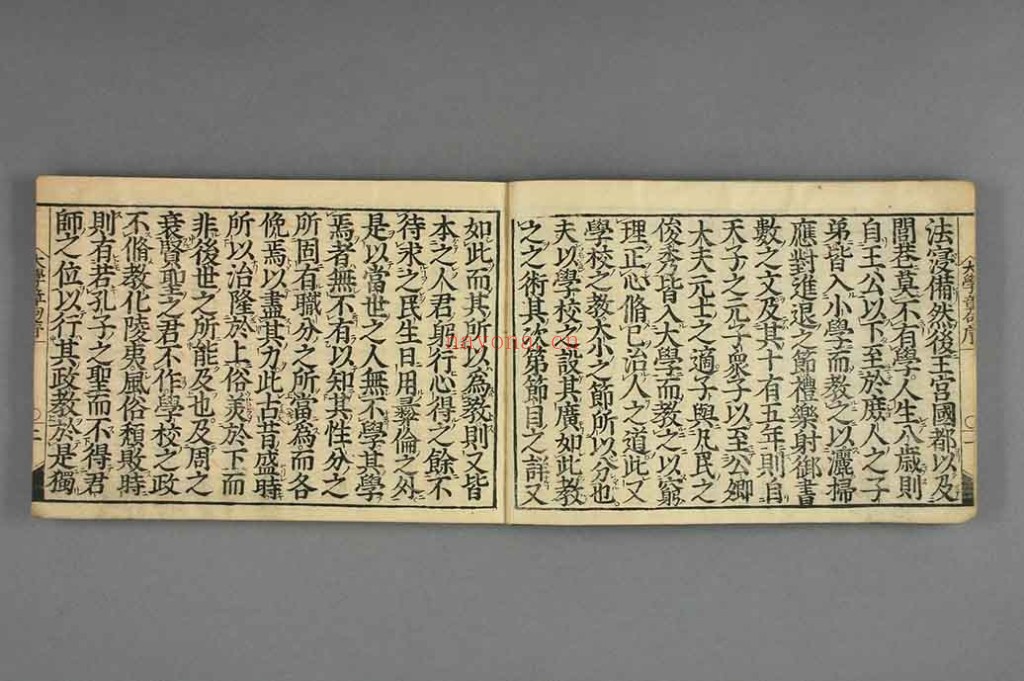 法寖備然後王宮國都以及
閭巷莫不有學人生八歲則
自王公以下至於庶人之子
弟皆入小學而教之以灑掃
應對進退之節禮樂射御書
數之文及其十有五年則自
天子之元子衆子以至公卿
大夫元士之適子與凡民之
俊秀皆入大學而教之以窮
理正心脩已治人之道此又
學校之教大小之節所以分也
夫以學校之設其廣如此教
之之術其次第節目之詳又
如此而其所以為教則又皆
本之人君躬行心得之餘不
待求之民生日用彛倫之外
是以當世之人無不學其學
焉者無不有以知其性分之
所固有職分之所當為而各
俛焉以盡其力此古昔盛時
所以治隆於上俗美於下而
非後世之所能及也及周之
衰賢聖之君不作學校之政
不脩教化陵夷風俗頹敗時
則有若孔子之聖而不得君
師之位以行其政教於是獨
大學章句序
nayona.cn